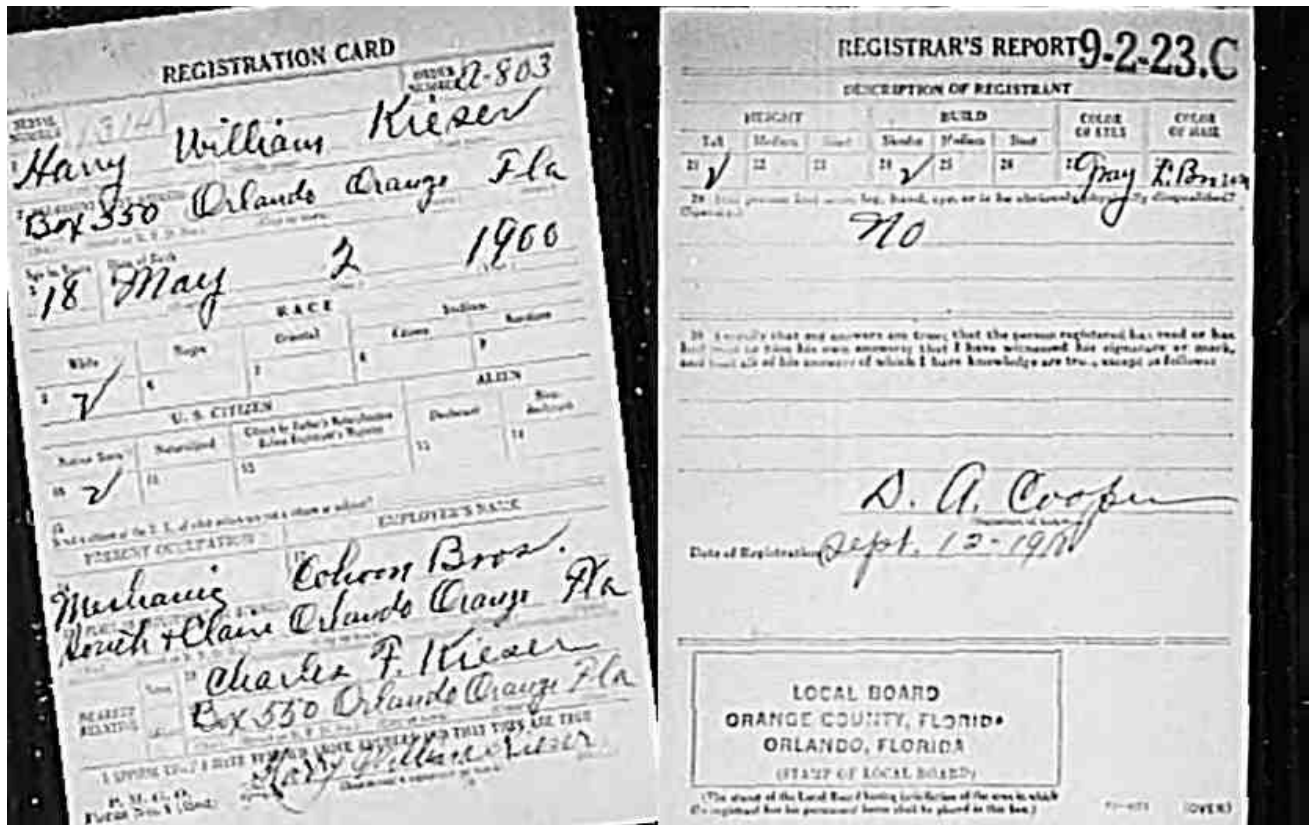 REGISTRATION CARD
SERIAL NUMBER 1314 ORDER NUMBER A-803
1 Harry William Kieser
Box 550 Orlando Orange Fla
Age in Years Date of Birth
18 May 2 1900
RACE
White Negro Oriental Indian
Citizen
5 6 7 8 9
U. S. CITIZEN ALIEN
Native Born Naturalized Citizen by Father's Naturalization Before Registrant's Majority Declarant Non-declarant
10 11 12 13 14
15
PRESENT OCCUPATION EMPLOYER'S NAME
Mechanic Bros.
Orlando Orange Fla
NEAREST RELATIVE Charles F. Kieser
Box 550 Orlando Orange Fla
I AFFIRM THAT I HAVE VERIFIED ABOVE ANSWERS AND THAT THEY ARE TRUE
Harry William Kieser
P. M. G. O.
Form No. 1 (Red)
REGISTRAR'S REPORT 9-2-23.C
DESCRIPTION OF REGISTRANT
HEIGHT BUILD COLOR OF EYES COLOR OF HAIR
Tall Medium Short Slender Medium Stout
21 22 23 24 25 26 27 Gray L. Brown
29 Has person lost arm, leg, hand, eye, or is he obviously physically disqualified?
(Specify.)
No
30 I certify that my answers are true; that the person registered has read or has
had read to him his own answers; that I have witnessed his signature or mark,
and that all of his answers of which I have knowledge are true, except as follows:
D. A. Cooper
Date of Registration Sept. 12-1918
LOCAL BOARD
ORANGE COUNTY, FLORIDA
ORLANDO, FLORIDA
(STAMP OF LOCAL BOARD)
(The stamp of the Local Board having jurisdiction of the area in which
the registrant has his permanent home shall be placed in this box.)
(OVER)